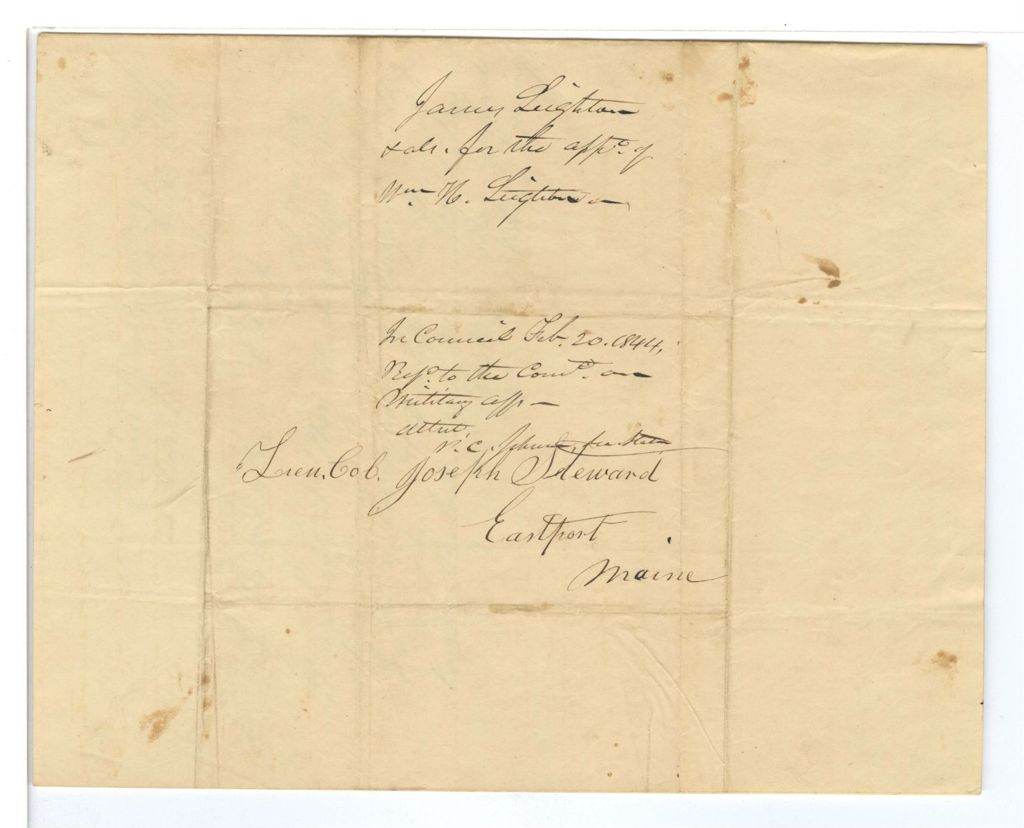 James Leighton
& als. for the appt. of
Wm. H. Leighton
In Council Feb. 20. 1844.
Refd. to the Come. on
Military Affs
Attest
P. C. Johnson, Sec. State
Lieu. Col. Joseph Steward
Eastport
Maine